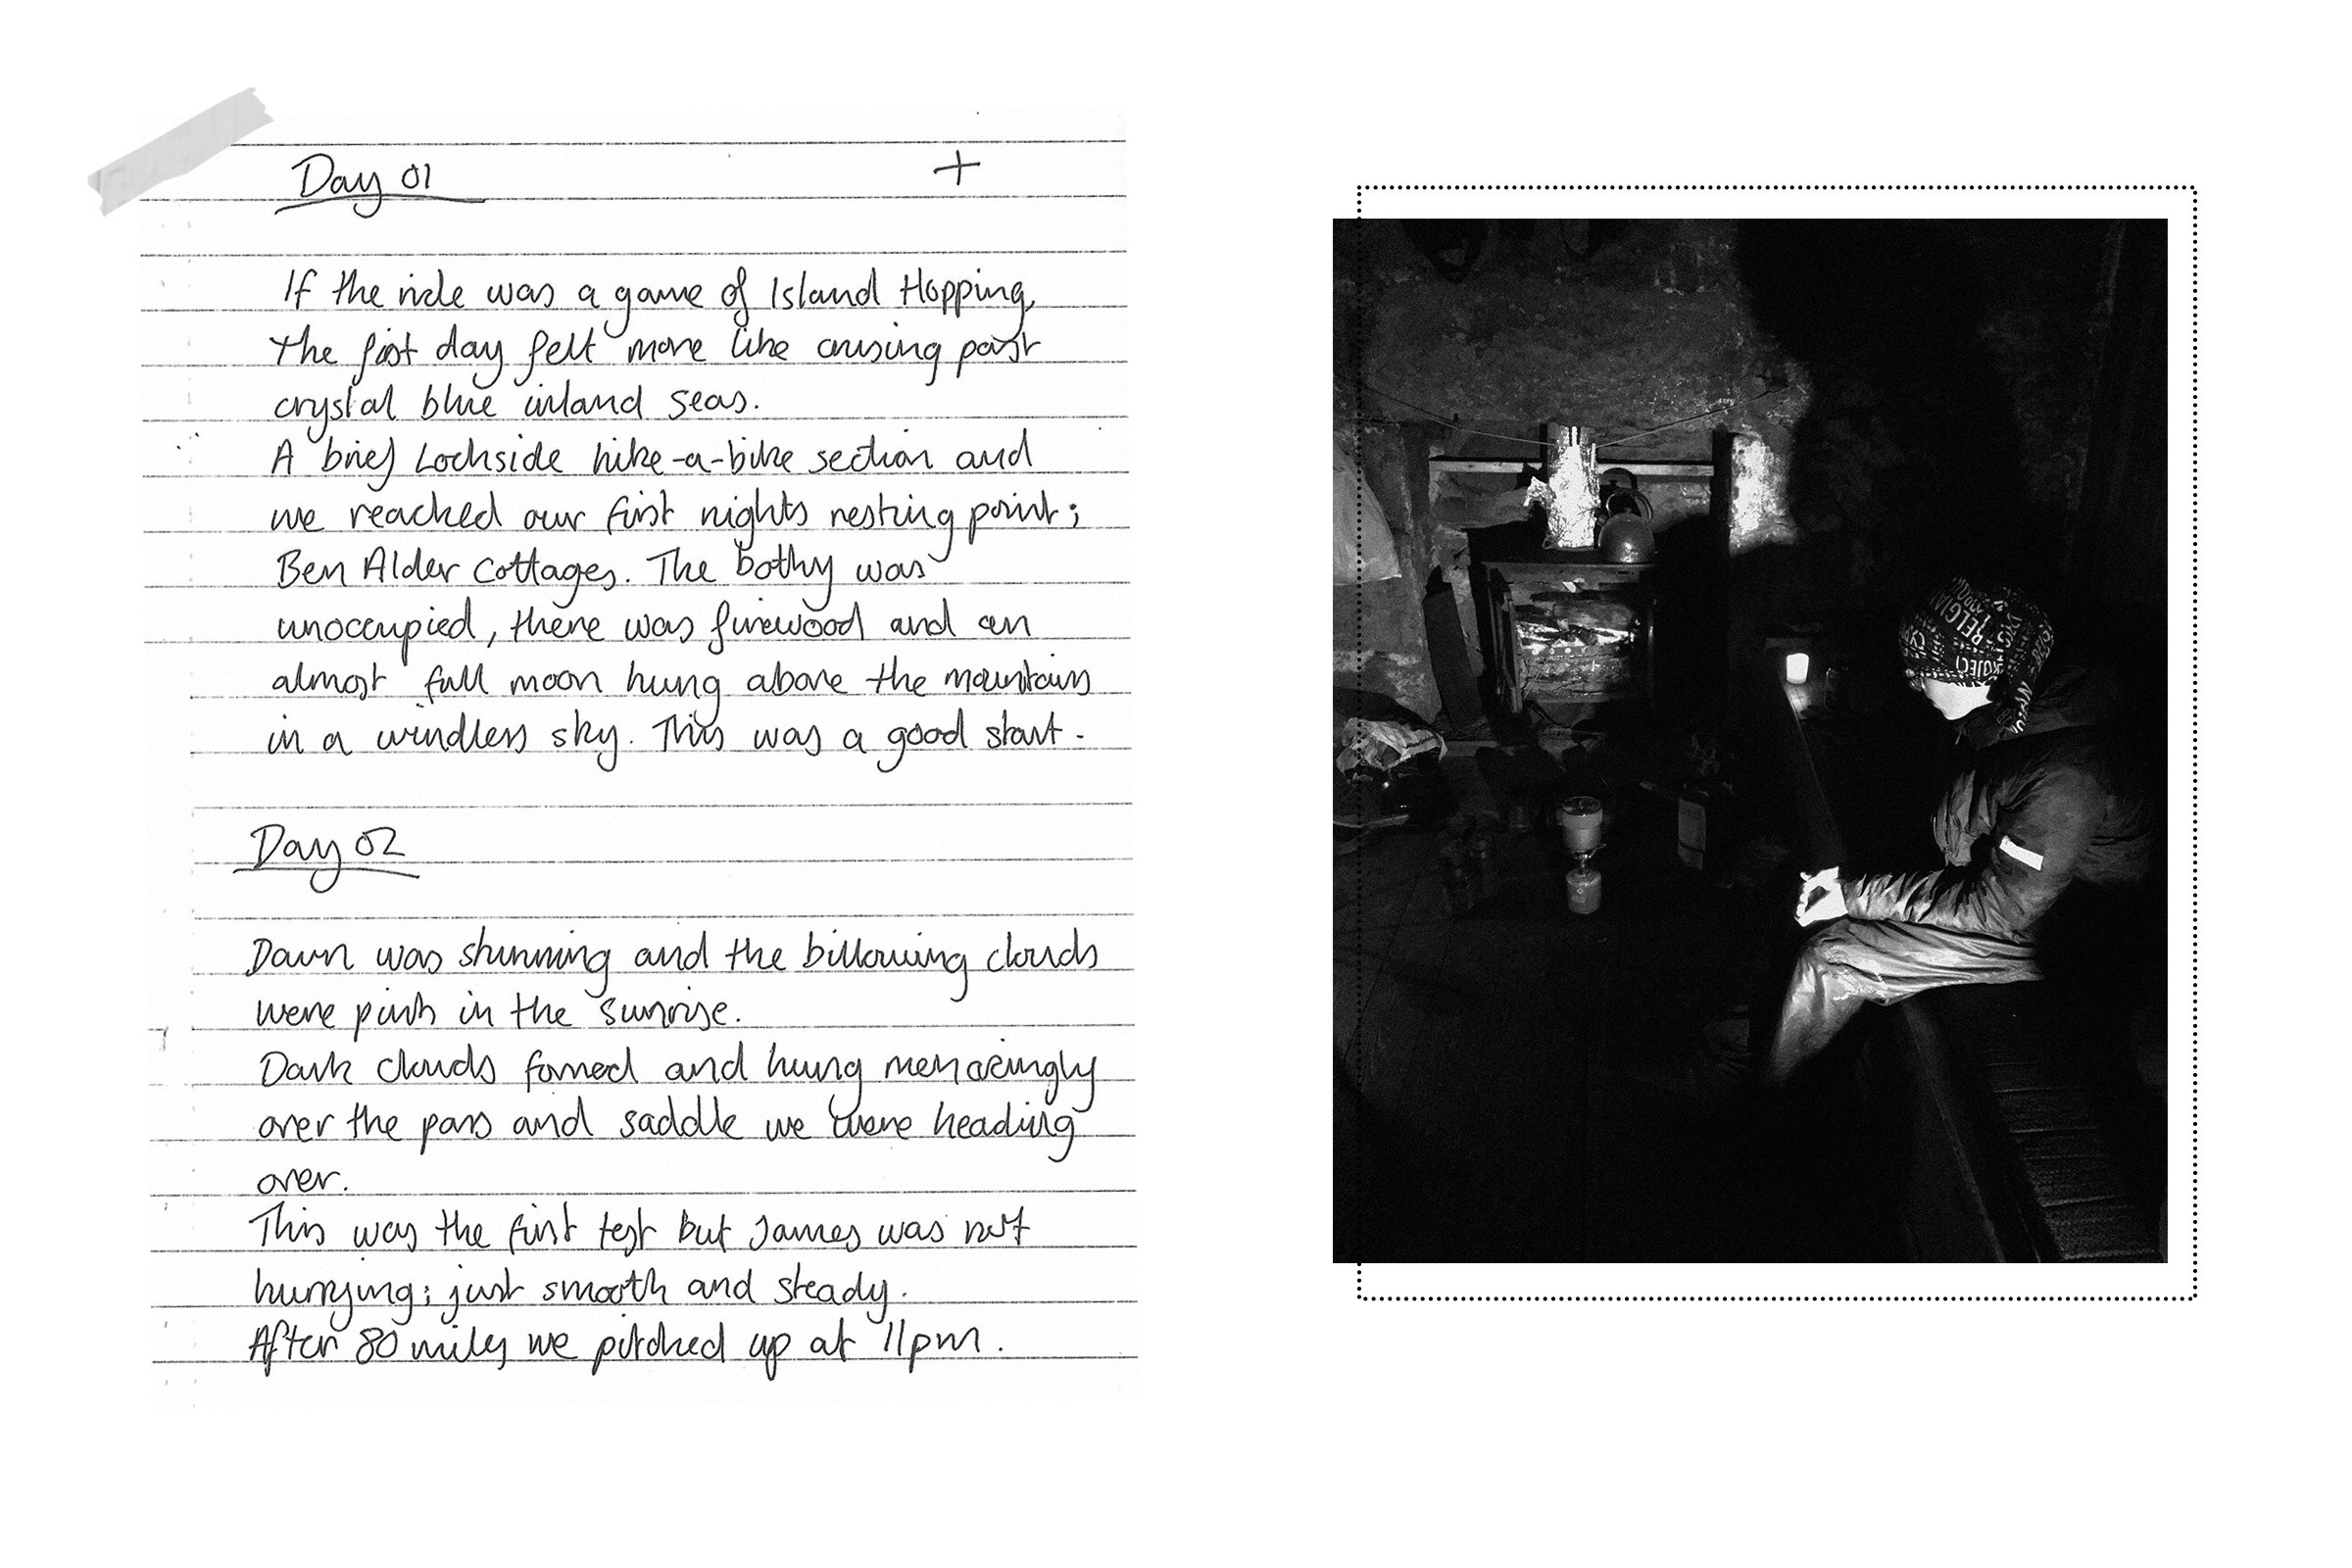 Day 01
+
If the ride was a game of Island Hopping,
the first day felt more like cruising past
crystal blue inland seas.
A brief Lochside hike-a-bike section and
we reached our first nights resting point;
Ben Alder Cottages. The bothy was
unoccupied, there was firewood and an
almost full moon hung above the mountains
in a windless sky. This was a good start.
Day 02
Dawn was stunning and the billowing clouds
were pink in the sunrise.
Dark clouds formed and hung menacingly
over the pass and saddle we were heading
over.
This was the first test but James was not
hurrying; just smooth and steady.
After 80 miles we pitched up at 11pm.